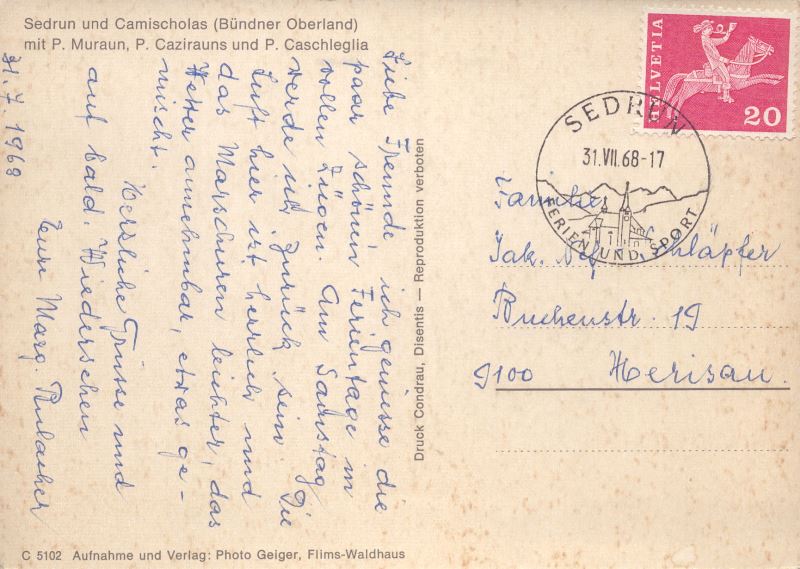 Sedrun und Camischolas (Bündner Oberland)
mit P. Muraun, P. Cazirauns und P. Caschleglia
31. 7. 1968
Liebe Freunde ich geniesse die
paar schönen Ferientage in
vollen Zügen. Am Samstag
werde ich zurück sein. Die
Luft hier ist herrlich und
das Marschieren leichter, das
Wetter annehmbar, etwas ge-
mischt.
Herzliche Grüsse und
auf bald. Wiedersehen
Eure Marg.
Druck Condrau, Disentis — Reproduktion verboten
HELVETIA
20
SEDRUN
31.VII.68-17
FERIEN UND SPORT
Familie
Jak. Schläpfer
Buchenstr. 19
9100 Herisau.
C 5102 Aufnahme und Verlag: Photo Geiger, Flims-Waldhaus